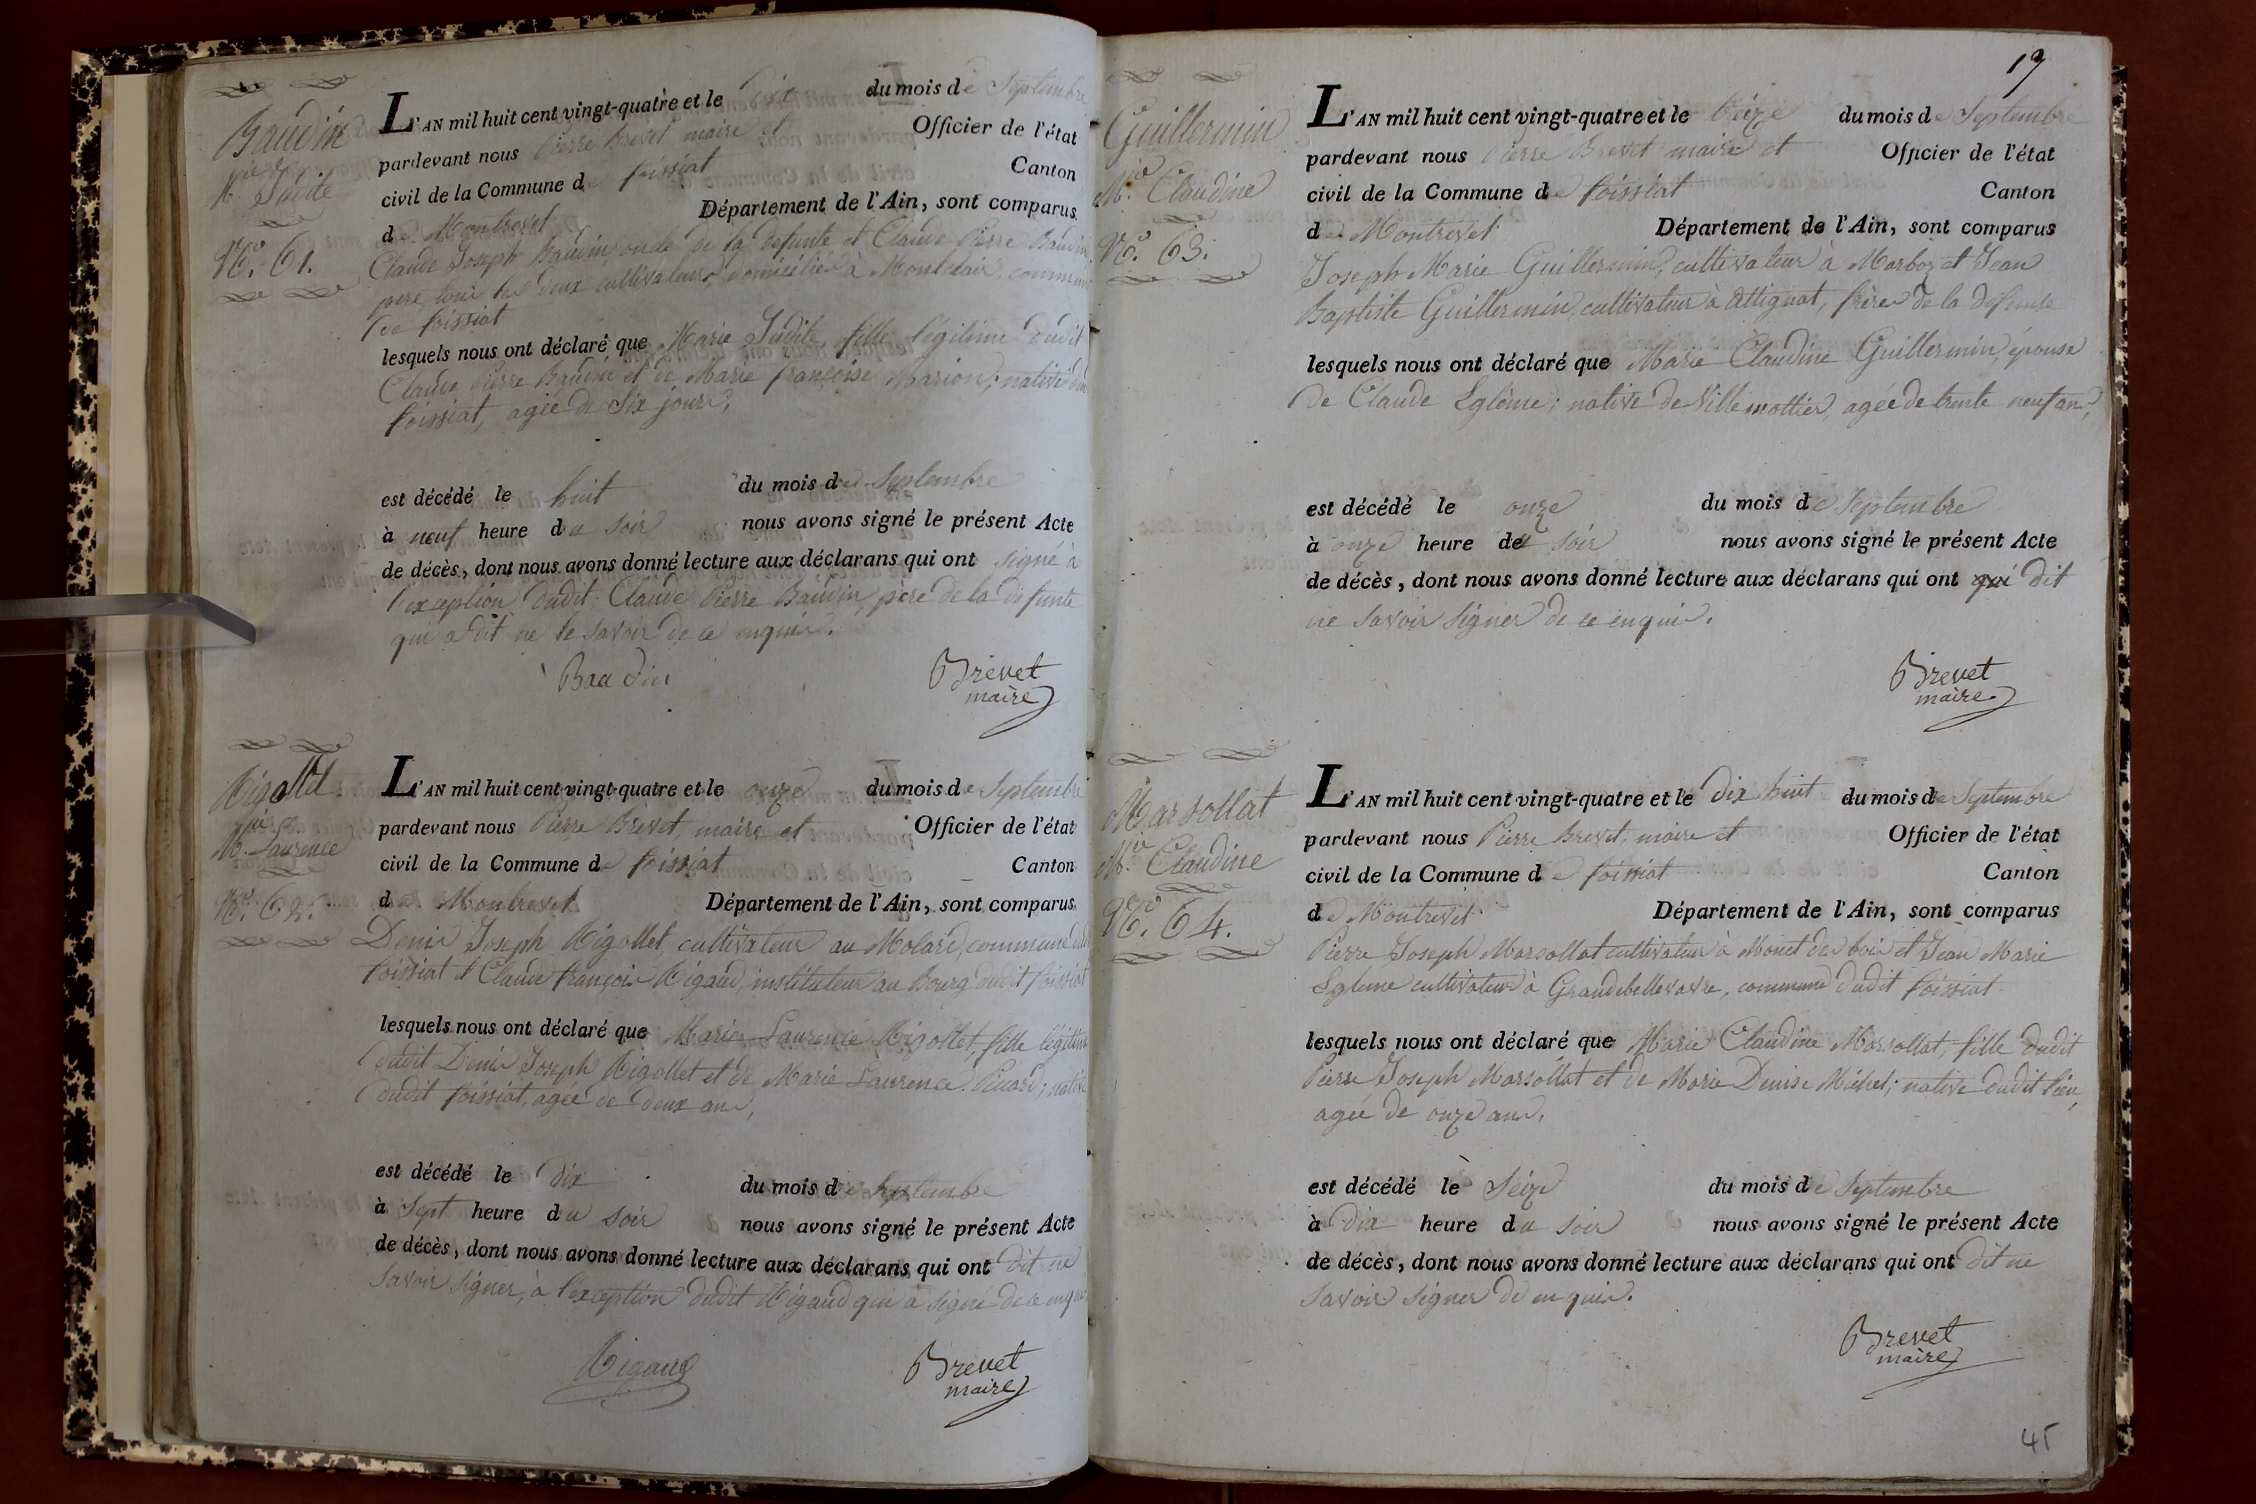 Baudin
M.ie Judite
N.o 61.
L'AN mil huit cent vingt-quatre et le dix du mois de Septembre
pardevant nous Pierre Brevet maire et Officier de l'état
civil de la Commune de foissiat Canton
de Montrevel Département de l'Ain, sont comparus
Claude Joseph Baudin oncle de la defunte et Claude Pierre Baudin
père, tous les deux cultivateurs, domiciliés à Montclair commune
de foissiat
lesquels nous ont déclaré que Marie Judite, fille légitime dudit
Claude Pierre Baudin et de Marie françoise Marion; native dud
foissiat, agée de Six jours,
est décédé le huit du mois de Septembre
à neuf heure du soir nous avons signé le présent Acte
de décès, dont nous avons donné lecture aux déclarans qui ont signé à
l'exception dudit Claude Pierre Baudin, père de la defunte
qui a dit ne le savoir de ce enquis.
Baudin Brevet
maire
Rigollet
M.ie Laurence
N.o 62.
L'AN mil huit cent vingt-quatre et le onze du mois de Septembre
pardevant nous Pierre Brevet, maire et Officier de l'état
civil de la Commune de foissiat Canton
de Montrevel Département de l'Ain, sont comparus
Denis Joseph Rigollet, cultivateur au Molard, commune dud
foissiat et Claude françois Rigaud, instituteur au Bourg dudit foissiat
lesquels nous ont déclaré que Marie Laurence Rigollet, fille légitime
dudit Denis Joseph Rigollet et de Marie Laurence Picard; native
dudit foissiat, agée de deux ans,
est décédé le dix du mois de Septembre
à Sept heure du soir nous avons signé le présent Acte
de décès, dont nous avons donné lecture aux déclarans qui ont dit ne
savoir signer, à l'exception dudit Rigaud qui a signé de ce enquis
Rigaud Brevet
maire
19
Guillermin
M.ie Claudine
N.o 63.
L'AN mil huit cent vingt-quatre et le treize du mois de Septembre
pardevant nous Pierre Brevet maire et Officier de l'état
civil de la Commune de foissiat Canton
de Montrevel Département de l'Ain, sont comparus
Joseph Marie Guillermin, cultivateur à Marboz et Jean
Baptiste Guillermin, cultivateur à Attignat, frères de la defunte
lesquels nous ont déclaré que Marie Claudine Guillermin, épouse
de Claude Eglème; native de Villemottier, agée de trente neuf ans,
est décédé le onze du mois de Septembre
à onze heure du soir nous avons signé le présent Acte
de décès, dont nous avons donné lecture aux déclarans qui ont qui dit
ne savoir signer de ce enquis.
Brevet
maire
Marsollat
M.ie Claudine
N.o 64.
L'AN mil huit cent vingt-quatre et le dix huit du mois de Septembre
pardevant nous Pierre Brevet, maire et Officier de l'état
civil de la Commune de foissiat Canton
de Montrevel Département de l'Ain, sont comparus
Pierre Joseph Marsollat cultivateur à Mouet des bois et Jean Marie
Egleme cultivateur à Grandebellevavre, commune dudit foissiat
lesquels nous ont déclaré que Marie Claudine Marsollat, fille dudit
Pierre Joseph Marsollat et de Marie Denise Michel; native dudit lieu,
agée de onze ans,
est décédé le Seize du mois de Septembre
à dix heure du soir nous avons signé le présent Acte
de décès, dont nous avons donné lecture aux déclarans qui ont dit ne
savoir signer de enquis.
Brevet
maire
45